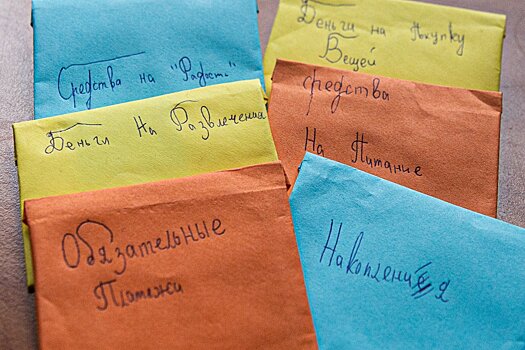 Средства на "Радость"
Деньги на Покупку
Вещей
Деньги На Развлечения
Средства
На Питание
Обязательные
Платежи
Накопления